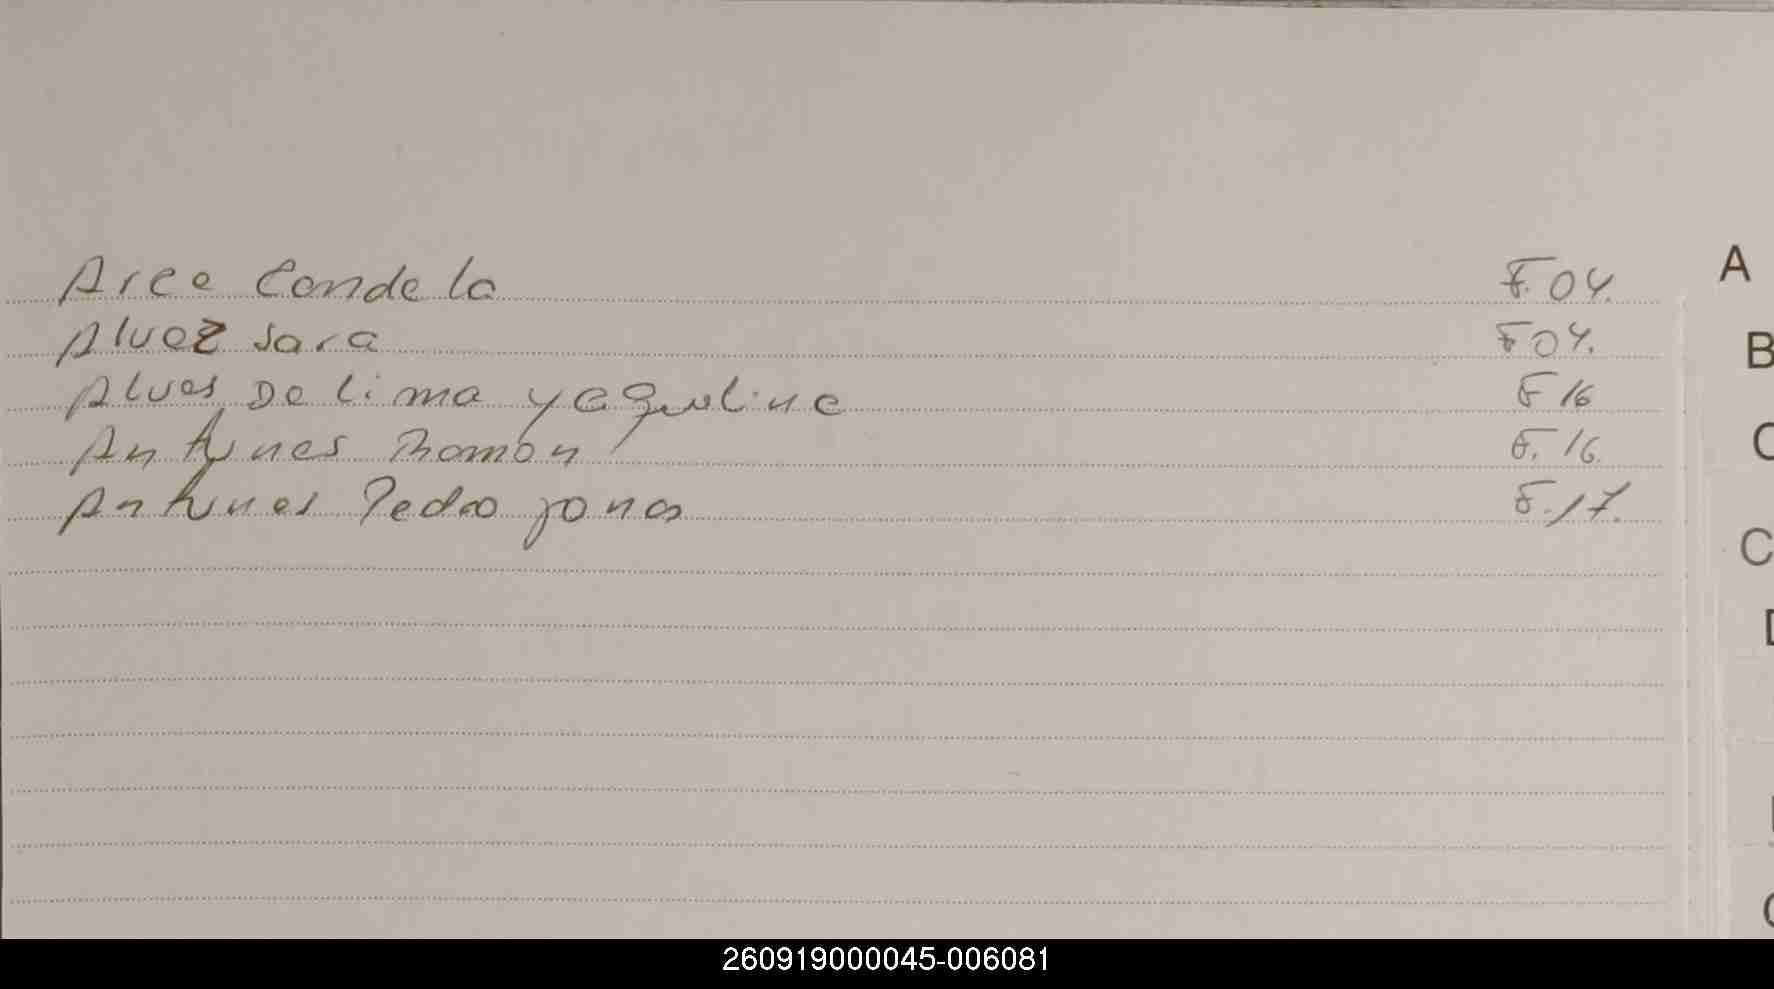 Arce Candela F.04.
Alvez Sara F04.
Alves De lima yaqueline F 16
Antunes Ramón F. 16.
Antunes Pedro jonas F.17.
A
B
C
C
D
260919000045-006081